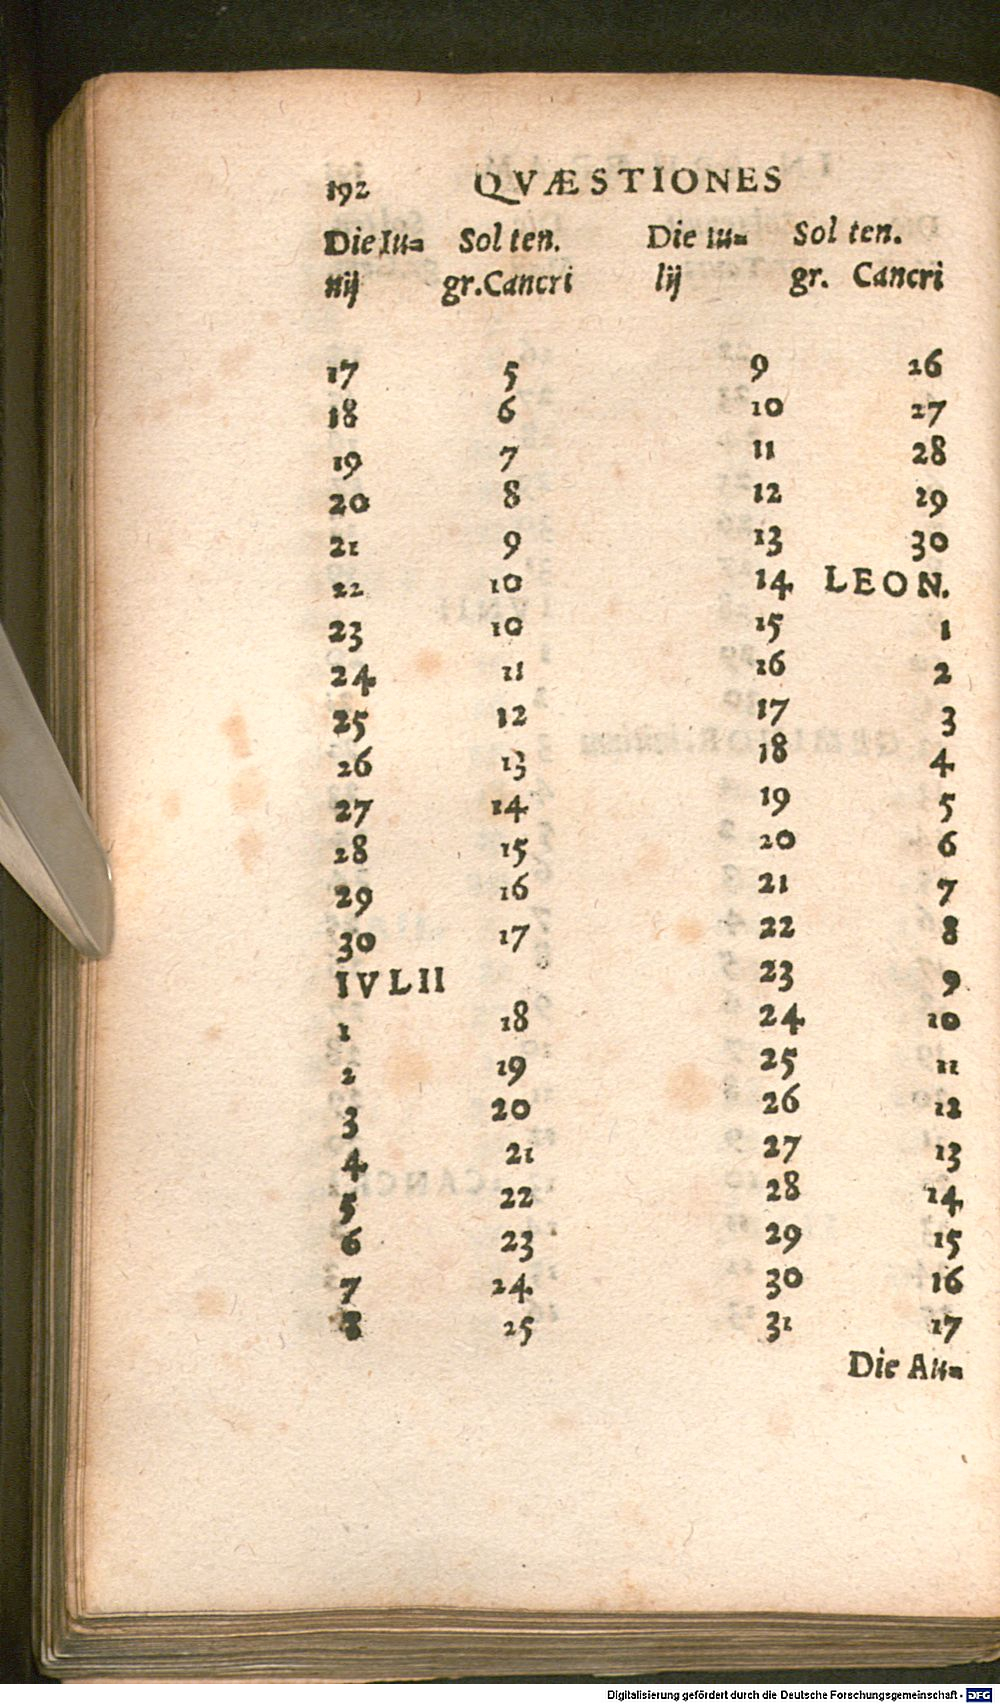 192 QVÆSTIONES
Die Iu= Sol ten. Die Iu= Sol ten.
nij gr. Cancri lij gr. Cancri
17 5 9 26
18 6 10 27
19 7 11 28
20 8 12 29
21 9 13 30
22 10 14 LEON.
23 10 15 1
24 11 16 2
25 12 17 3
26 13 18 4
27 14 19 5
28 15 20 6
29 16 21 7
30 17 22 8
IVLII 23 9
1 18 24 10
2 19 25 11
3 20 26 12
4 21 27 13
5 22 28 14
6 23 29 15
7 24 30 16
8 25 31 17
Die Au=
Digitalisierung gefördert durch die Deutsche Forschungsgemeinschaft - DFG